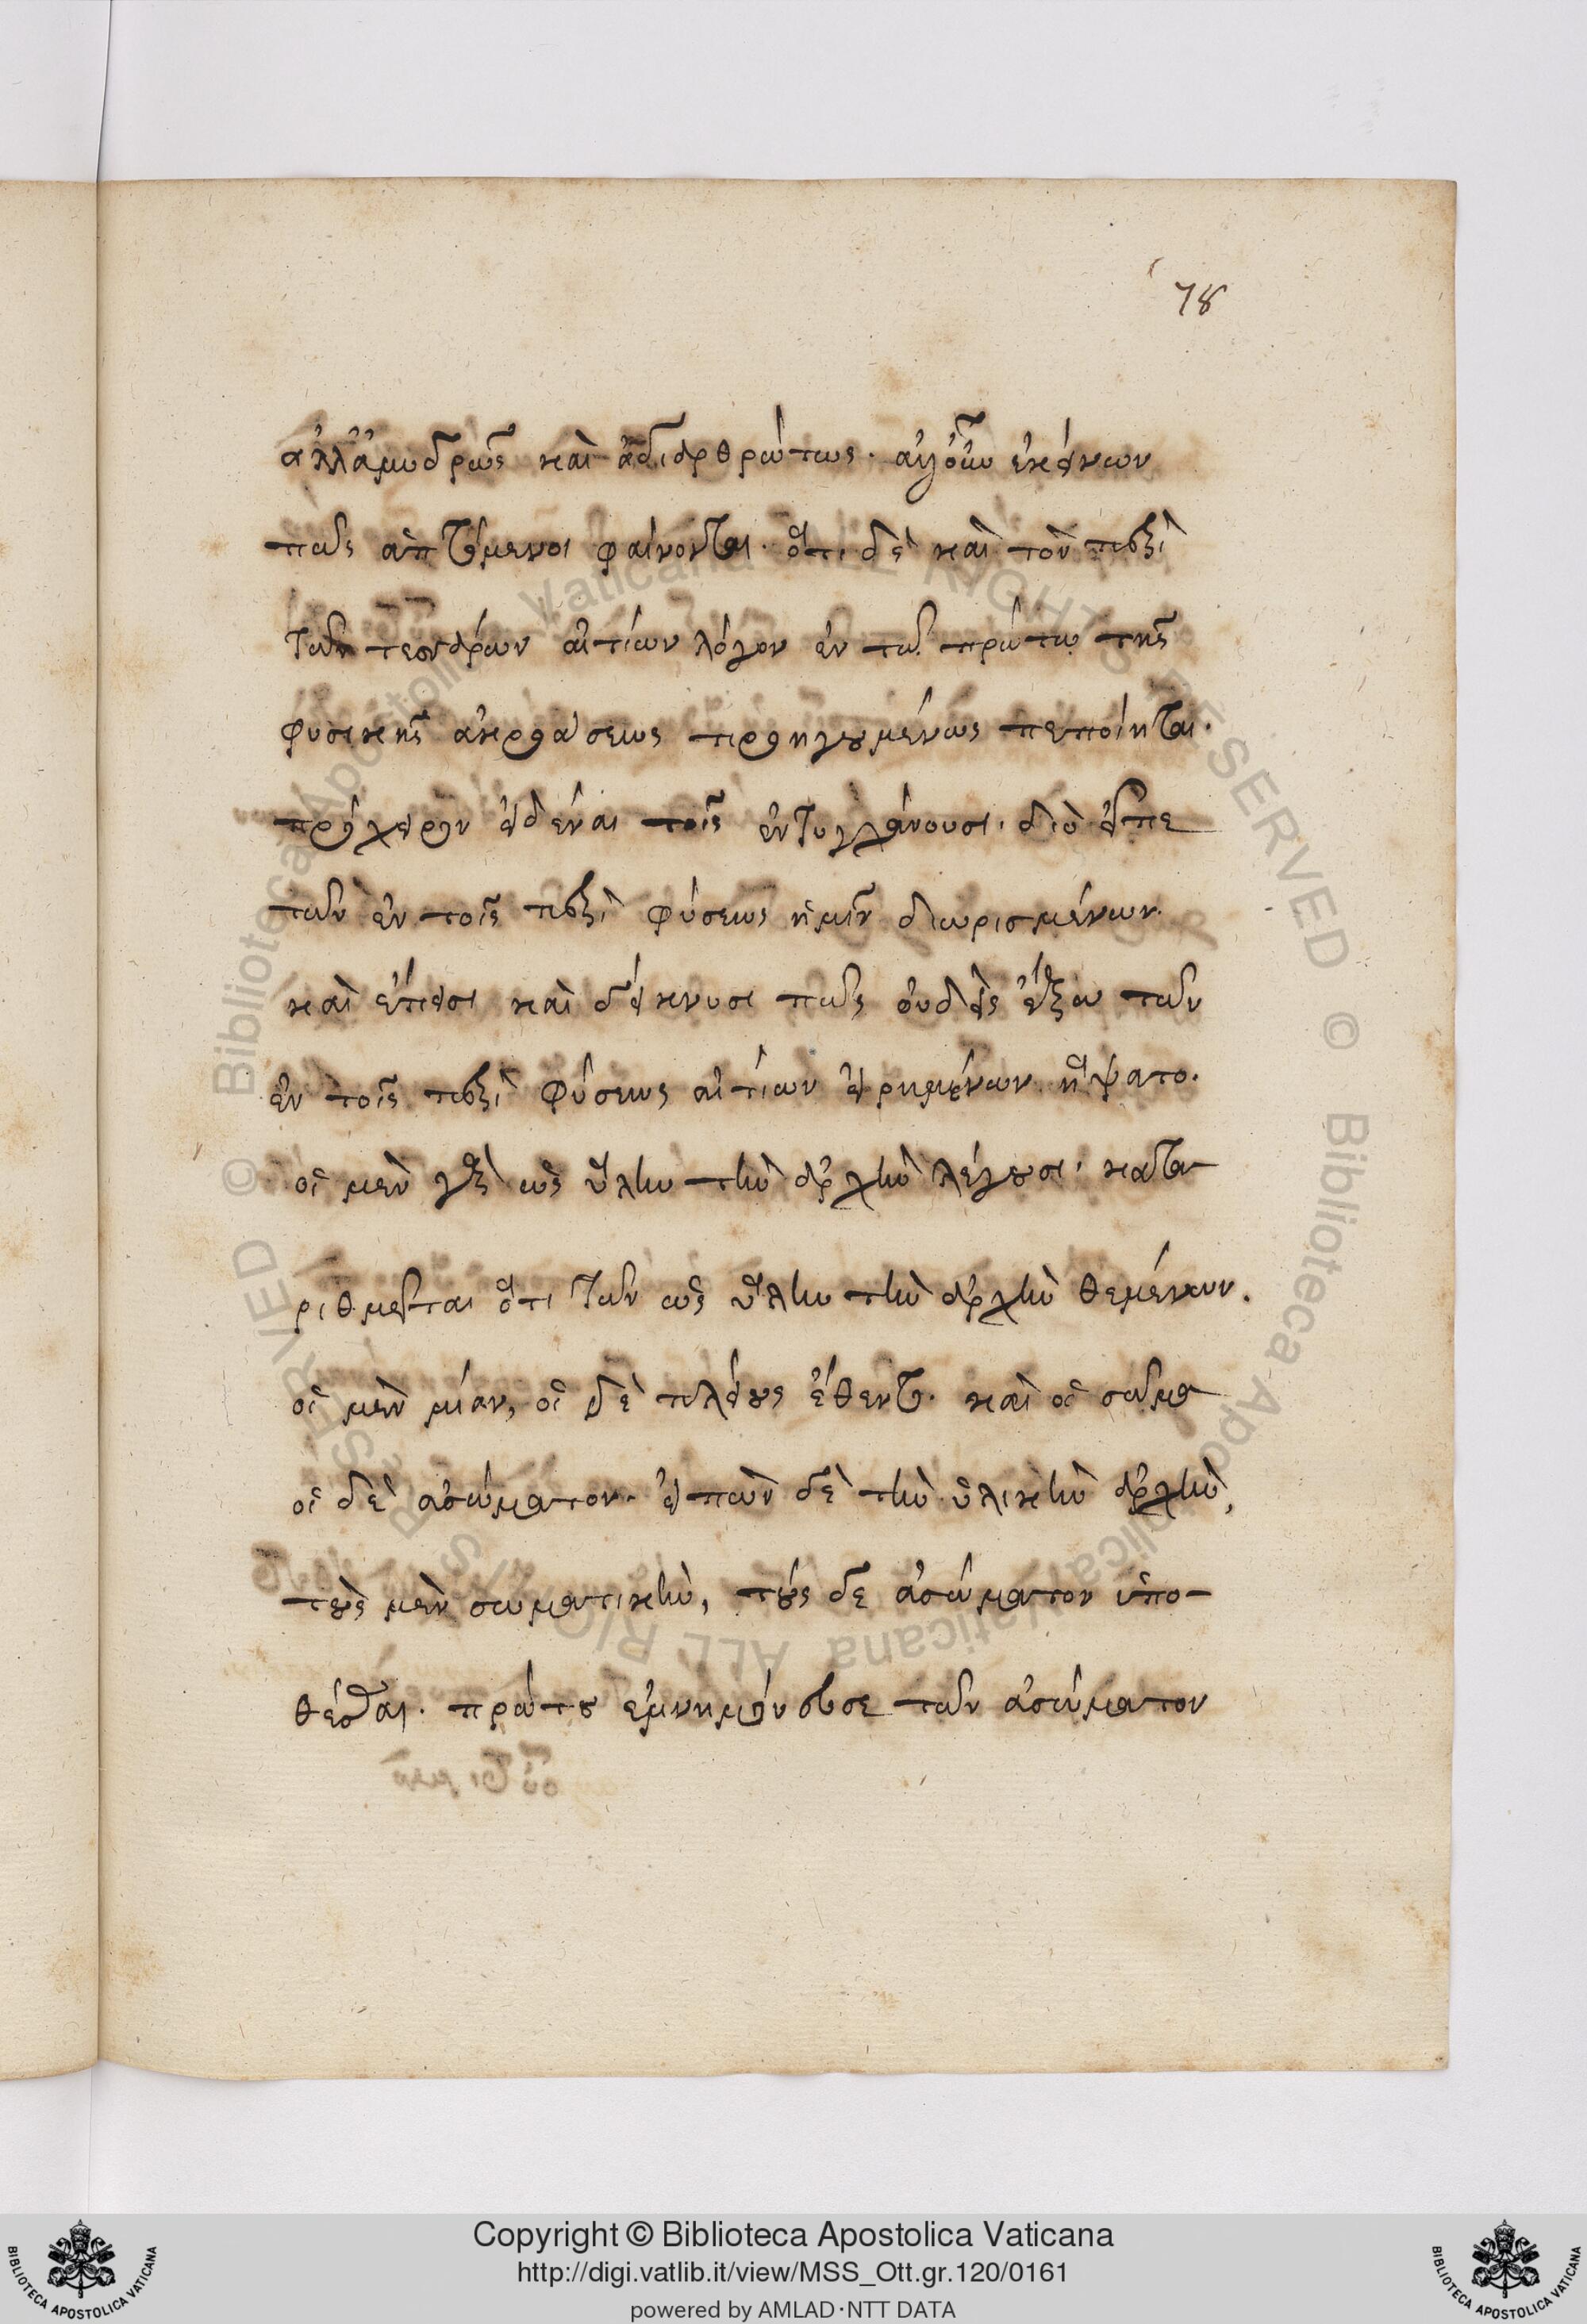 78
ἀλλ' ἀμυδρῶς καὶ ἀδιαρθρώτως. αὐτῶν ἐκείνων
πως ἁπτόμενοι φαίνονται. ὅτι δὲ καὶ τὸν περὶ
τῶν τεσσάρων αἰτίων λόγον ἐν τῷ πρώτῳ τῆς
φυσικῆς ἀκροάσεως προηγουμένως πεποίηται.
πρόχειρον εἰδέναι τοῖς ἐντυγχάνουσι. διὸ εἶπε
τῶν ἐν τοῖς περὶ φύσεως ἡμῖν διωρισμένων.
καὶ ἔπεισι καὶ δείκνυσι πῶς οὐδεὶς ἔξω τῶν
ἐν τοῖς περὶ φύσεως αἰτίων εἰρημένων ἥψατο.
οἱ μὲν γὰρ ὡς ὕλην τὴν ἀρχὴν λέγουσι. κατα
ριθμεῖται ὅτι τῶν ὡς ὕλην τὴν ἀρχὴν θεμένων.
οἱ μὲν μίαν, οἱ δὲ πλείους ἔθεντο. καὶ οἱ σῶμα
οἱ δὲ ἀσώματον. εἰπὼν δὲ τὴν ὑλικὴν ἀρχὴν,
τοὺς μὲν σωματικὴν, τοὺς δὲ ἀσώματον ὑπο-
θέσθαι. πρώτου ἐμνημόνευσε τῶν ἀσώματον
Copyright © Biblioteca Apostolica Vaticana
http://digi.vatlib.it/view/MSS_Ott.gr.120/0161
powered by AMLAD·NTT DATA
BIBLIOTECA APOSTOLICA VATICANA
BIBLIOTECA APOSTOLICA VATICANA
© Biblioteca Apostolica Vaticana ALL RIGHTS RESERVED © Biblioteca Apostolica Vaticana ALL RIGHTS RESERVED